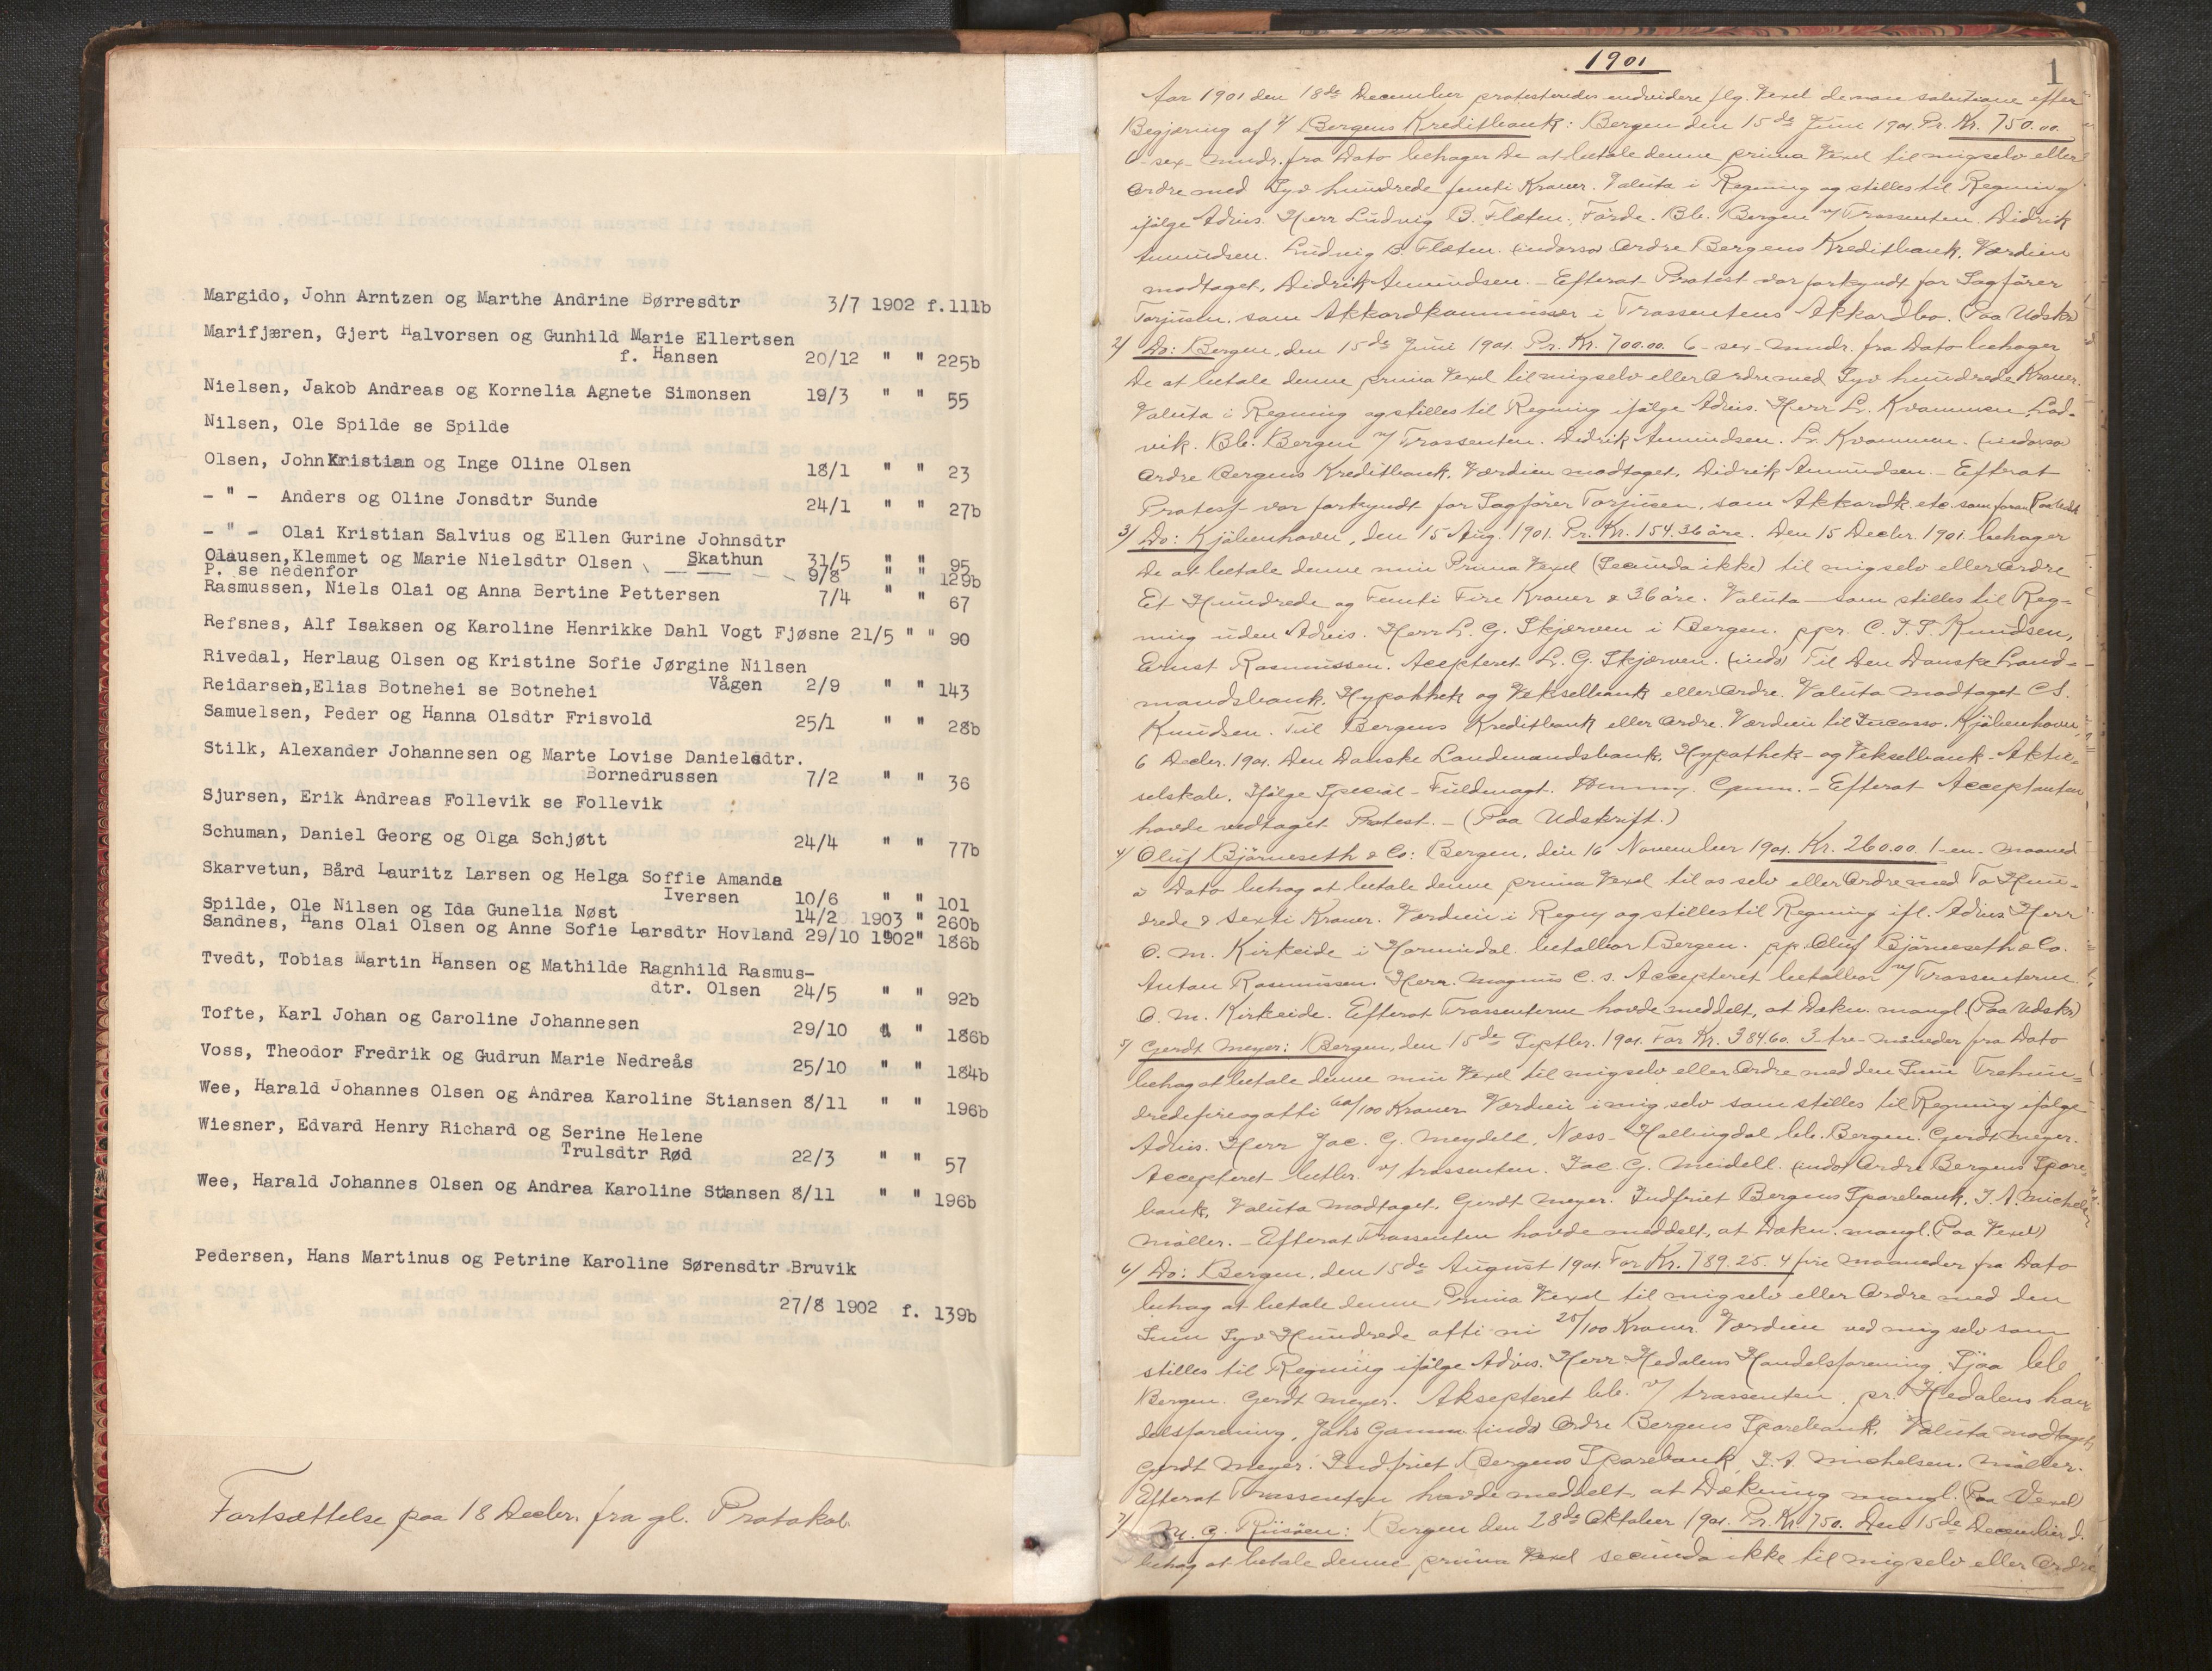 Margido, John Arntzen og Marthe Andrine Børresdtr 3/7 1902 f.111b
Marifjæren, Gjert Halvorsen og Gunhild Marie Ellertsen
f. Hansen 20/12 " " 225b
Nielsen, Jakob Andreas og Kornelia Agnete Simonsen 19/3 " " 55
Nilsen, Ole Spilde se Spilde
Olsen, John Kristian og Inge Oline Olsen 18/1 " " 23
- " - Anders og Oline Jonsdtr Sunde 24/1 " " 27b
- " - Olai Kristian Salvius og Ellen Gurine Johnsdtr
Skathun 31/5 " " 95
Olausen, Klemmet og Marie Nielsdtr Olsen 9/8 " " 129b
P. se nedenfor
Rasmussen, Niels Olai og Anna Bertine Pettersen 7/4 " " 67
Refsnes, Alf Isaksen og Karoline Henrikke Dahl Vogt Fjøsne 21/5 " " 90
Rivedal, Herlaug Olsen og Kristine Sofie Jørgine Nilsen
Vågen 2/9 " " 143
Reidarsen, Elias Botnehei se Botnehei
Samuelsen, Peder og Hanna Olsdtr Frisvold 25/1 " " 28b
Stilk, Alexander Johannesen og Marte Lovise Danielsdtr.
Bornedrussen 7/2 " " 36
Sjursen, Erik Andreas Follevik se Follevik
Schuman, Daniel Georg og Olga Schjøtt 24/4 " " 77b
Skarvetun, Bård Lauritz Larsen og Helga Soffie Amanda
Iversen 10/6 " " 101
Spilde, Ole Nilsen og Ida Gunelia Nøst 14/2 1903 " 260b
Sandnes, Hans Olai Olsen og Anne Sofie Larsdtr Hovland 29/10 1902 " 186b
Tvedt, Tobias Martin Hansen og Mathilde Ragnhild Rasmus-
dtr. Olsen 24/5 " " 92b
Tofte, Karl Johan og Caroline Johannesen 29/10 " " 186b
Voss, Theodor Fredrik og Gudrun Marie Nedreås 25/10 " " 184b
Wee, Harald Johannes Olsen og Andrea Karoline Stiansen 8/11 " " 196b
Wiesner, Edvard Henry Richard og Serine Helene
Trulsdtr Rød 22/3 " " 57
Wee, Harald Johannes Olsen og Andrea Karoline Stiansen 8/11 " " 196b
Pedersen, Hans Martinus og Petrine Karoline Sørensdtr Bruvik
27/8 1902 f. 139b
Fortsættelse paa 18 Decbr. fra gl. Protokol.
1901
1
Aar 1901 den 18de December protesteredes endvidere flg. Vexel de non solutione efter
Begjæring af 1/ Bergens Kreditbank: Bergen den 15de Juni 1901. Pr. Kr. 750.00.
6 - sex - mndr. fra Dato behager De at betale denne prima Vexel til mig selv eller
Ordre med Syv hundrede femti Kroner. Valuta i Regning og stilles til Regning
ifølge Advis. Herr Ludvig B. Flæten. Førde. Bb. Bergen v/ Trassenten. Didrik
Amundsen. Ludvig B. Flæten. (indorso) Ordre Bergens Kreditbank. Værdien
modtaget. Didrik Amundsen. - Efterat Protest var forkyndt for Sagfører
Torjusen, som Akkordkommissær i Trassentens Akkordbo. (Paa Udskr.)
2/ Do: Bergen, den 15de Juni 1901. Pr. Kr. 700.00. 6 - sex - mndr. fra Dato behager
De at betale denne prima Vexel til mig selv eller Ordre med Syv hundrede Kroner.
Valuta i Regning og stilles til Regning ifølge Advis. Herr L. Kvammen Lad-
vik. Bb. Bergen v/ Trassenten. Didrik Amundsen. L. Kvammen. (indorso)
Ordre Bergens Kreditbank. Værdien modtaget. Didrik Amundsen. - Efterat
Protest var forkyndt for Sagfører Torjusen, som Akkordk. etc. som foran
3/ Do: Kjøbenhavn, den 15 Aug. 1901. Pr. Kr. 154.36 øre. Den 15 Decbr. 1901 behager
De at betale denne min Prima Vexel (Secunda ikke) til mig selv eller Ordre
Et Hundrede og Femti Fire Kroner & 36 øre. Valuta som stilles til Reg-
ning uden Advis. Herr L. G. Skjerven i Bergen. ppr. C. J. S. Knudsen,
Ernst Rasmussen. Accepteret L. G. Skjerven. (indo) Til Den Danske Land-
mandsbank, Hypothek og Vekselbank eller Ordre. Valuta modtaget C. S.
Knudsen. Til Bergens Kreditbank eller Ordre. Værdien til Incasso. Kjøbenhavn,
6 Decbr. 1901. Den Danske Landmandsbank, Hypothek- og Vekselbank. Aktie-
selskab. Ifølge Special-Fuldmagt. - Efterat Acceptanten
havde vedtaget Protest. - (Paa Udskrift.)
4/ Oluf Bjørneseth & Co: Bergen, den 16 November 1901. Kr. 260.00. 1 - en - maaned
a Dato behag at betale denne prima Vexel til os selv eller Ordre med To Hun-
drede & Sexti Kroner. Værdien i Regng og stilles til Regning ifl. Advis Herr
O. M. Kirkeide i Hornindal betalbar Bergen. pp. Oluf Bjørneseth & Co.
Anton Rasmussen. Herr. Magnus C. S. Accepteret betalbar v/ Trassenterne
O. M. Kirkeide. Efterat Trassenterne havde meddelt, at Dækn. mangl. (Paa Udskr)
5/ Gerdt Meyer: Bergen, den 15de Septbr. 1901. For Kr. 384.60. 3 - tre - måneder fra Dato
behag at betale denne min Vexel til mig selv eller Ordre med den Sum Trehun-
dredefireogotti 60/100 Kroner Værdien i mig selv som stilles til Regning ifølge
Advis. Herr Jac. G. Meydell, Næss - Hallingdal bb. Bergen. Gerdt Meyer.
Accepteret betbr. v/ trassenten. Jac. G. Meidell. (indo) Ordre Bergens Spare-
bank, Valuta modtaget. Gerdt Meyer. Indfriet Bergens Sparebank, J. A. Michelsen
Møller. - Efterat Trassenten havde meddelt, at Dækn. mangl. (Paa Vexel)
6/ Do: Bergen, den 15de August 1901. For Kr. 789.25. 4 fire maaneder fra Dato
behag at betale denne Prima Vexel til mig selv eller Ordre med den
Sum Syv Hundrede otti ni 25/100 Kroner. Værdien ved mig selv som
stilles til Regning ifølge Advis. Herr Hedalens Handelsforening. Sjåa bb
Bergen. Gerdt Meyer. Aksepteret bb. v/ trassenten. pr. Hedalens han-
delsforening, Johs (indo) Ordre Bergens Sparebank. Valuta modtaget
Gerdt Meyer. Indfriet Bergens Sparebank J. A. Michelsen. Møller.
Efterat Trassenten havde meddelt, at Dækning mangl. (Paa Vexel)
7/ M. G. Riisøen: Bergen den 28de Oktober 1901. Pr. Kr. 750. Den 15de December d.
behag at betale denne prima Vexel secunda ikke til mig selv eller Ordre